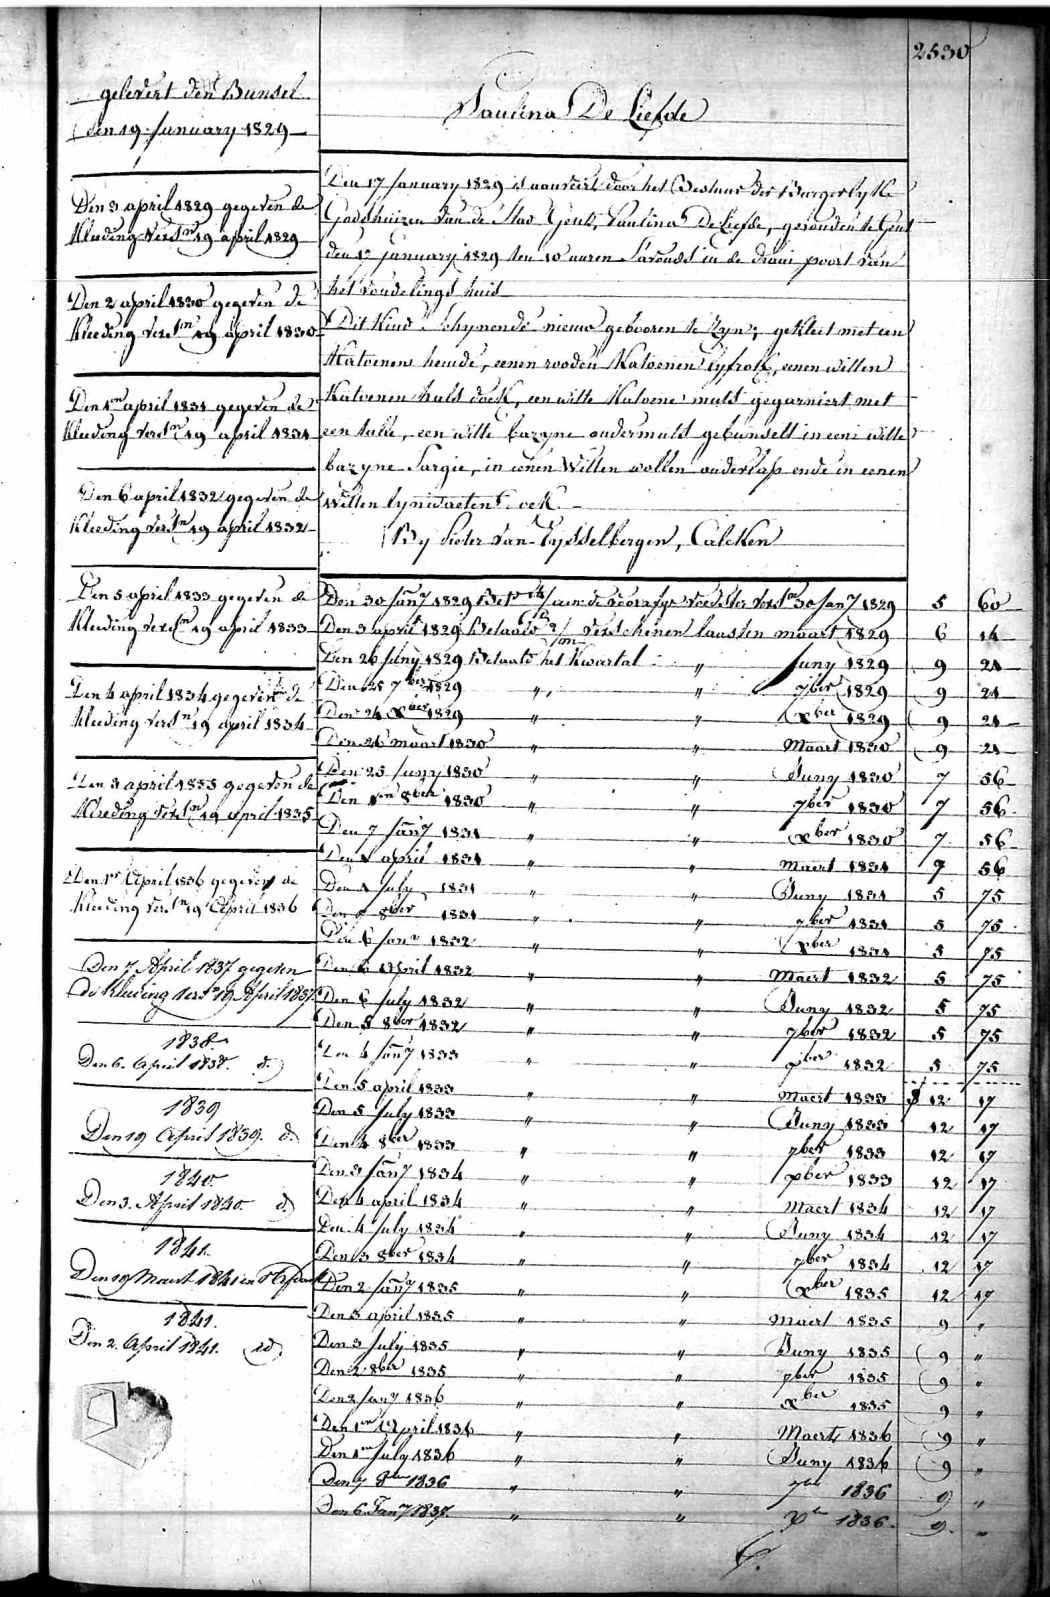 2530
Paulina De Liefde
gelevert den Bunsel
den 19 January 1829
Den 3 april 1829 gegeven de
Kleeding versn 19 april 1829
Den 2 april 1830 gegeven de
Kleeding versn 19 april 1830
Den 1en april 1831 gegeven de
Kleeding versn 19 april 1831
Den 6 april 1832 gegeven de
Kleeding versn 19 april 1832
Den 5 april 1833 gegeven de
Kleeding versn 19 april 1833
Den 4 april 1834 gegeven de
Kleeding versn 19 april 1834
Den 3 april 1835 gegeven de
Kleeding versn 19 april 1835
Den 1r April 1836 gegeven de
Kleeding versn 19 April 1836
Den 7 April 1837 gegeven
de Kleeding versn 19 April 1837
1838.
Den 6. April 1838. d.)
1839
Den 19 April 1839. d.
1840.
Den 3. April 1840. d)
1841.
Den 19 Maert 1841 en
1841.
Den 2. April 1841. id)
Den 17 January 1829 is aanveirt door het Bestuur der Burgerlyke
Godshuizen van de Stad Gent, Paulina De Liefde, gevonden te Gent
den 17 january 1829 ten 10 uuren s'avonds in de draai poort van
het vondelings huis
Dit Kind schynende nieuw gebooren te zyn, gekleet met een
Katoenen hemde, eenen rooden Katoenen lyfrok, eenen witten
Katoenen hals doek, een witte Katoene muts gegarniert met
een tulle, een witte bazyne ondermuts gebunselt in eene witte
bazyne Sargie, in eenen Witten wollen onderlap ende in eenen
witten lynwaeten doek
By Pieter van Eysselbergen, Calcken
Den 30 Jany 1829 Bet aen de voorafge voedster versn 30 Jany 1829 5 60
Den 3 april 1829 Betaald verschenen laasten maart 1829 6 14
Den 26 Juny 1829 Betaald het Kwartal " Juny 1829 9 21
Den 25 7ber 1829 " " 7ber 1829 9 21
Den 24 Xber 1829 " " Xber 1829 9 21
Den 26 maart 1830 " " Maart 1830 9 21
Den 25 Juny 1830 " " Juny 1830 7 56
Den 1en 8ber 1830 " " 7ber 1830 7 56
Den 7 Jany 1831 " " Xber 1830 7 56
Den 1 april 1831 " " Maert 1831 7 56
Den 1 July 1831 " " Juny 1831 5 75
Den 7 8ber 1831 " " 7ber 1831 5 75
Den 6 Jany 1832 " " Xber 1831 5 75
Den 6 April 1832 " " Maert 1832 5 75
Den 6 July 1832 " " Juny 1832 5 75
Den 5 8ber 1832 " " 7ber 1832 5 75
Den 4 Jany 1833 " " Xber 1832 5 75
Den 5 april 1833 " " Maert 1833 12 17
Den 5 July 1833 " " Juny 1833 12 17
Den 4 8ber 1833 " " 7ber 1833 12 17
Den 3 Jany 1834 " " Xber 1833 12 17
Den 4 april 1834 " " Maert 1834 12 17
Den 4 July 1834 " " Juny 1834 12 17
Den 3 8ber 1834 " " 7ber 1834 12 17
Den 2 Jany 1835 " " Xber 1835 12 17
Den 3 april 1835 " " Maert 1835 9 "
Den 3 July 1835 " " Juny 1835 9 "
Den 2 8ber 1835 " " 7ber 1835 9 "
Den 2 Jany 1836 " " Xber 1835 9 "
Den 1en April 1836 " " Maert 1836 9 "
Den 1en July 1836 " " Juny 1836 9 "
Den 7 8ber 1836 " " 7ber 1836 9 "
Den 6 Jany 1837. " " Xber 1836. 9. "